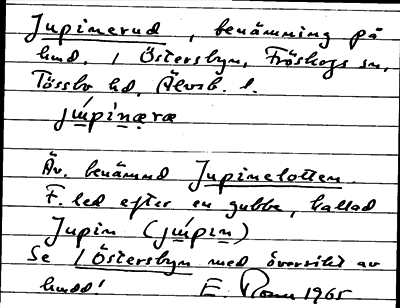 Jupinerud, benämning på
hmd. 1 Östersbyn, Fröskogs sn,
Tössbo hd, Älvsb. l.
júpinæræ
Äv. benämnd Jupinelotten
F. led efter en gubbe, kallad
Jupin (júpin)
Se 1 Östersbyn med översikt av
hmdd!
E. 1965